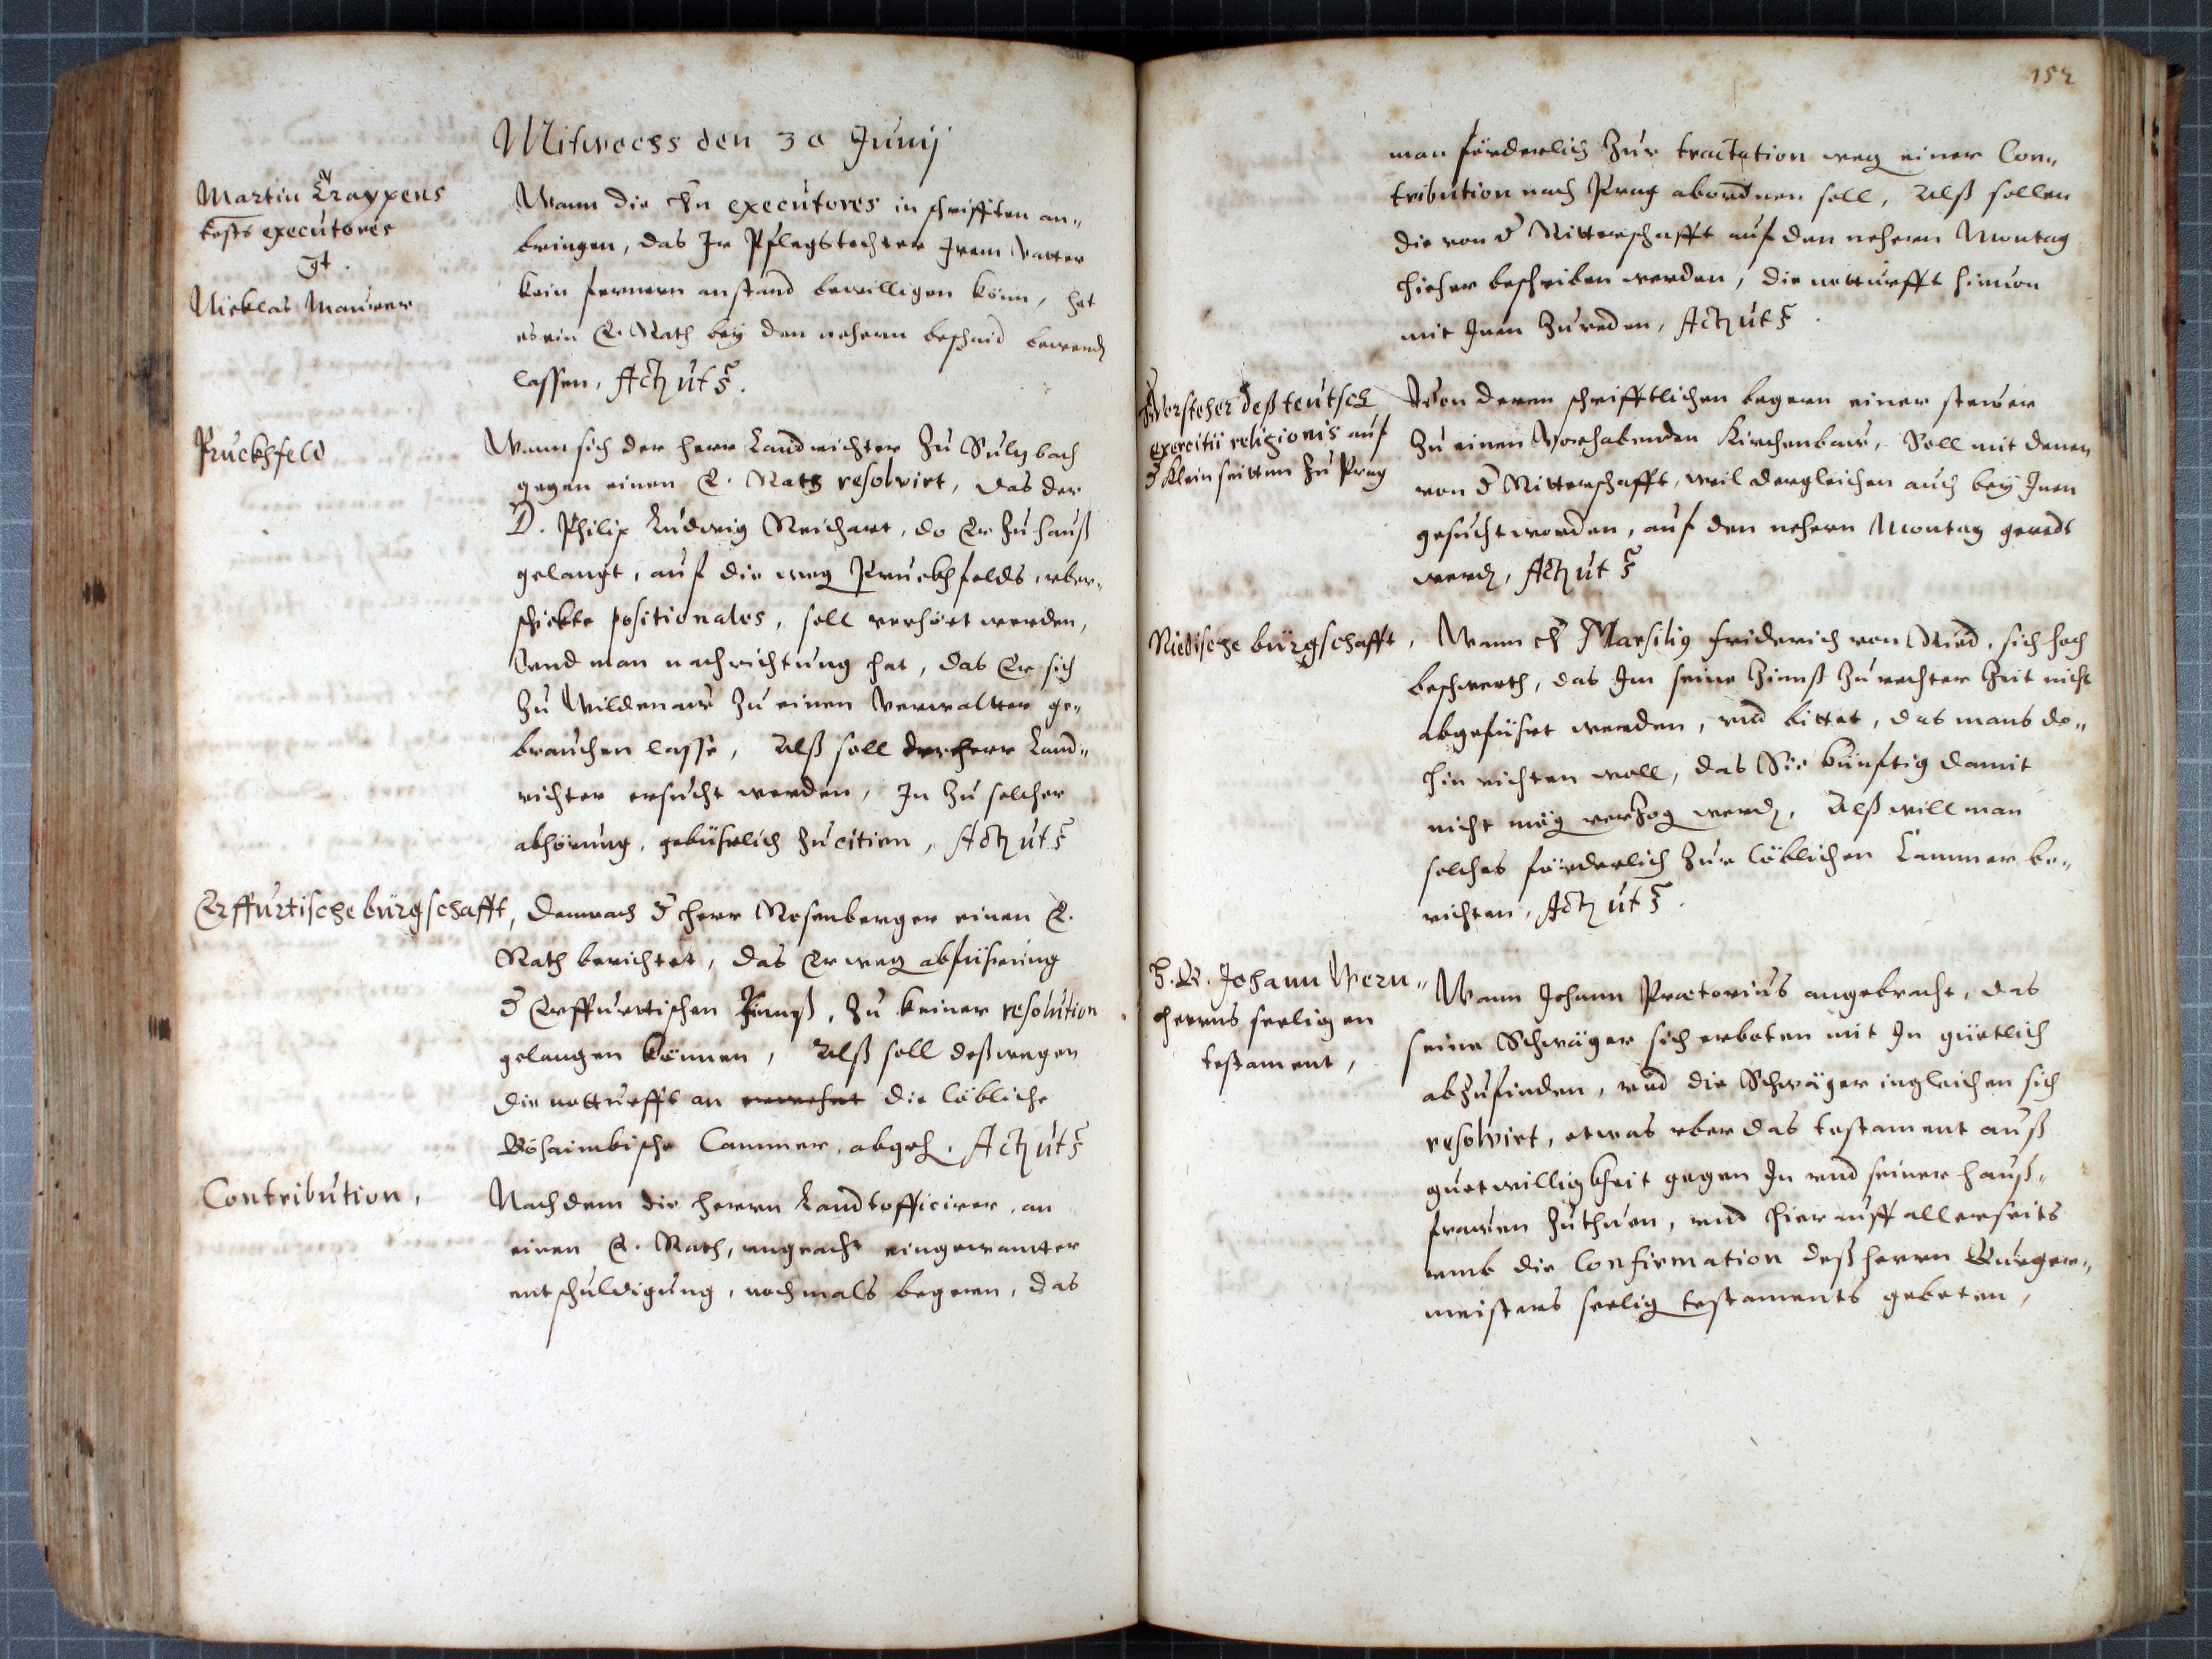 Mitwochs den 30 Junij
Martin Trappens
tests executores
gt.
Nicklas Maurer
Wann die Hn executores in schrifften an„
bringen, das Ir Pflegtochter Irem Vatter
kein fernern anstand bewilligen könn, hat
es ein E. Rath bey den nehern beschaid bewend
lassen, Act ut s.
Pruckhfeld
Wann sich der herr Landrichter zu Sulzbach
gegen einen E. Rath resolvirt, das der
D. Philip Ludwig Reichart, do Er zu hauß
gelangt, auf die weg Pruckhfelds, vber„
schickte positionales, soll verhört werden,
Vnd man nachrichtung hat, das Er sich
zu Wildenaw zu einen Verwalter ge„
brauchen lasse, Alß soll der herr Land„
richter ersucht werden, In zu solcher
abhörung, gebührlich zu citirn, Act ut s
Erffurtische bürgschafft,
Demnach d herr Rosenberger einen E.
Rath berichtet, das Er weg abführung
d Erffurtischen Zinnß, zu keiner resolution
gelangen können, Alß soll deßwegen
die notturfft an die löbliche
Böhaimbische Cammer, abgeh. Act ut s
Contribution,
Nachdem die herrn Landtofficirer, an
einen E. Rath, vngeacht eingewanter
entschuldigung, nochmals begern, das
152
man förderlich zur tractation weg einer Con„
tribution nach Prag abordnen soll, Alß sollen
die von d Ritterschafft auf den nehern Montag
hieher beschriben werden, die notturfft hiruon
mit Inen zu reden, Act ut s.
Vorsteher deß teutsch
exercitii religionis auf
d Kleinseitten zu Prag
Von deren schrifftlichen begern einer stewer
zu einen Vorhabenden Kirchenbaw, Soll mit denen
von d Ritterschafft, weil dergleichen auch bey Inen
gesucht worden, auf den nehern Montag geredt
werd, Act ut s
Riedische bürgschafft,
Wann H Marsilig friderich von Ried, sich hoch
beschwerth, das Im seine Zinnß zu rechter Zeit nicht
abgeführt werden, vnd bittet, das mans do„
hin richten woll, das Sie künftig damit
nicht mög verzog werd, Alß will man
solches förderlich zur löblichen Cammer be„
richten, Act ut s.
H. B. Johann Wern„
herrns seeligen
testament,
Wann Johann Prætorius angebracht, das
seine Schwäger sich erboten mit In güetlich
abzufinden, vnd die Schwäger ingleichen sich
resolvirt, etwas vber das testament auß
guetwilligkheit gegen In vnd seiner hauß„
frawen zuthuen, vnd hierauff allerseits
vmb die Confirmation deß herrn Burger„
meisters seelig testaments gebeten,